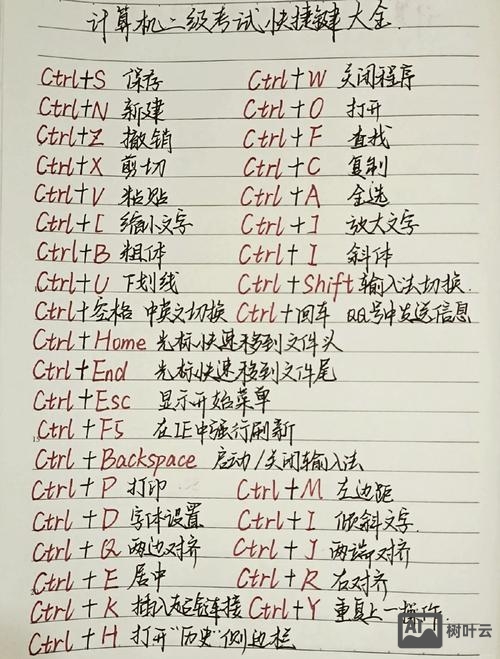 计算机二级考试快捷键大全.
Ctrl+S 保存 Ctrl+W 关闭程序
Ctrl+N 新建 Ctrl+O 打开
Ctrl+Z 撤销 Ctrl+F 查找
Ctrl+X 剪切 Ctrl+C 复制
Ctrl+V 粘贴 Ctrl+A 全选
Ctrl+[ 缩小文字 Ctrl+] 放大文字
Ctrl+B 粗体 Ctrl+I 斜体
Ctrl+U 下划线 Ctrl+Shift 输入法切换.
Ctrl+空格 中英文切换 Ctrl+回车 QQ号中发送信息
Ctrl+Home 光标快速移到文件头
Ctrl+End 光标快速移到文件尾
Ctrl+Esc 显示开始菜单
Ctrl+F5 在IE中强行刷新
Ctrl+Backspace 启动/关闭输入法
Ctrl+P 打印 Ctrl+M 左边距
Ctrl+D 字体设置 Ctrl+I 倾斜文字.
Ctrl+Q 两边对齐 Ctrl+J 两端对齐
Ctrl+E 居中 Ctrl+R 右对齐
Ctrl+K 插入超链接 Ctrl+Y 重复上一操作.
Ctrl+H 打开"历史"侧边栏
AI 树叶云